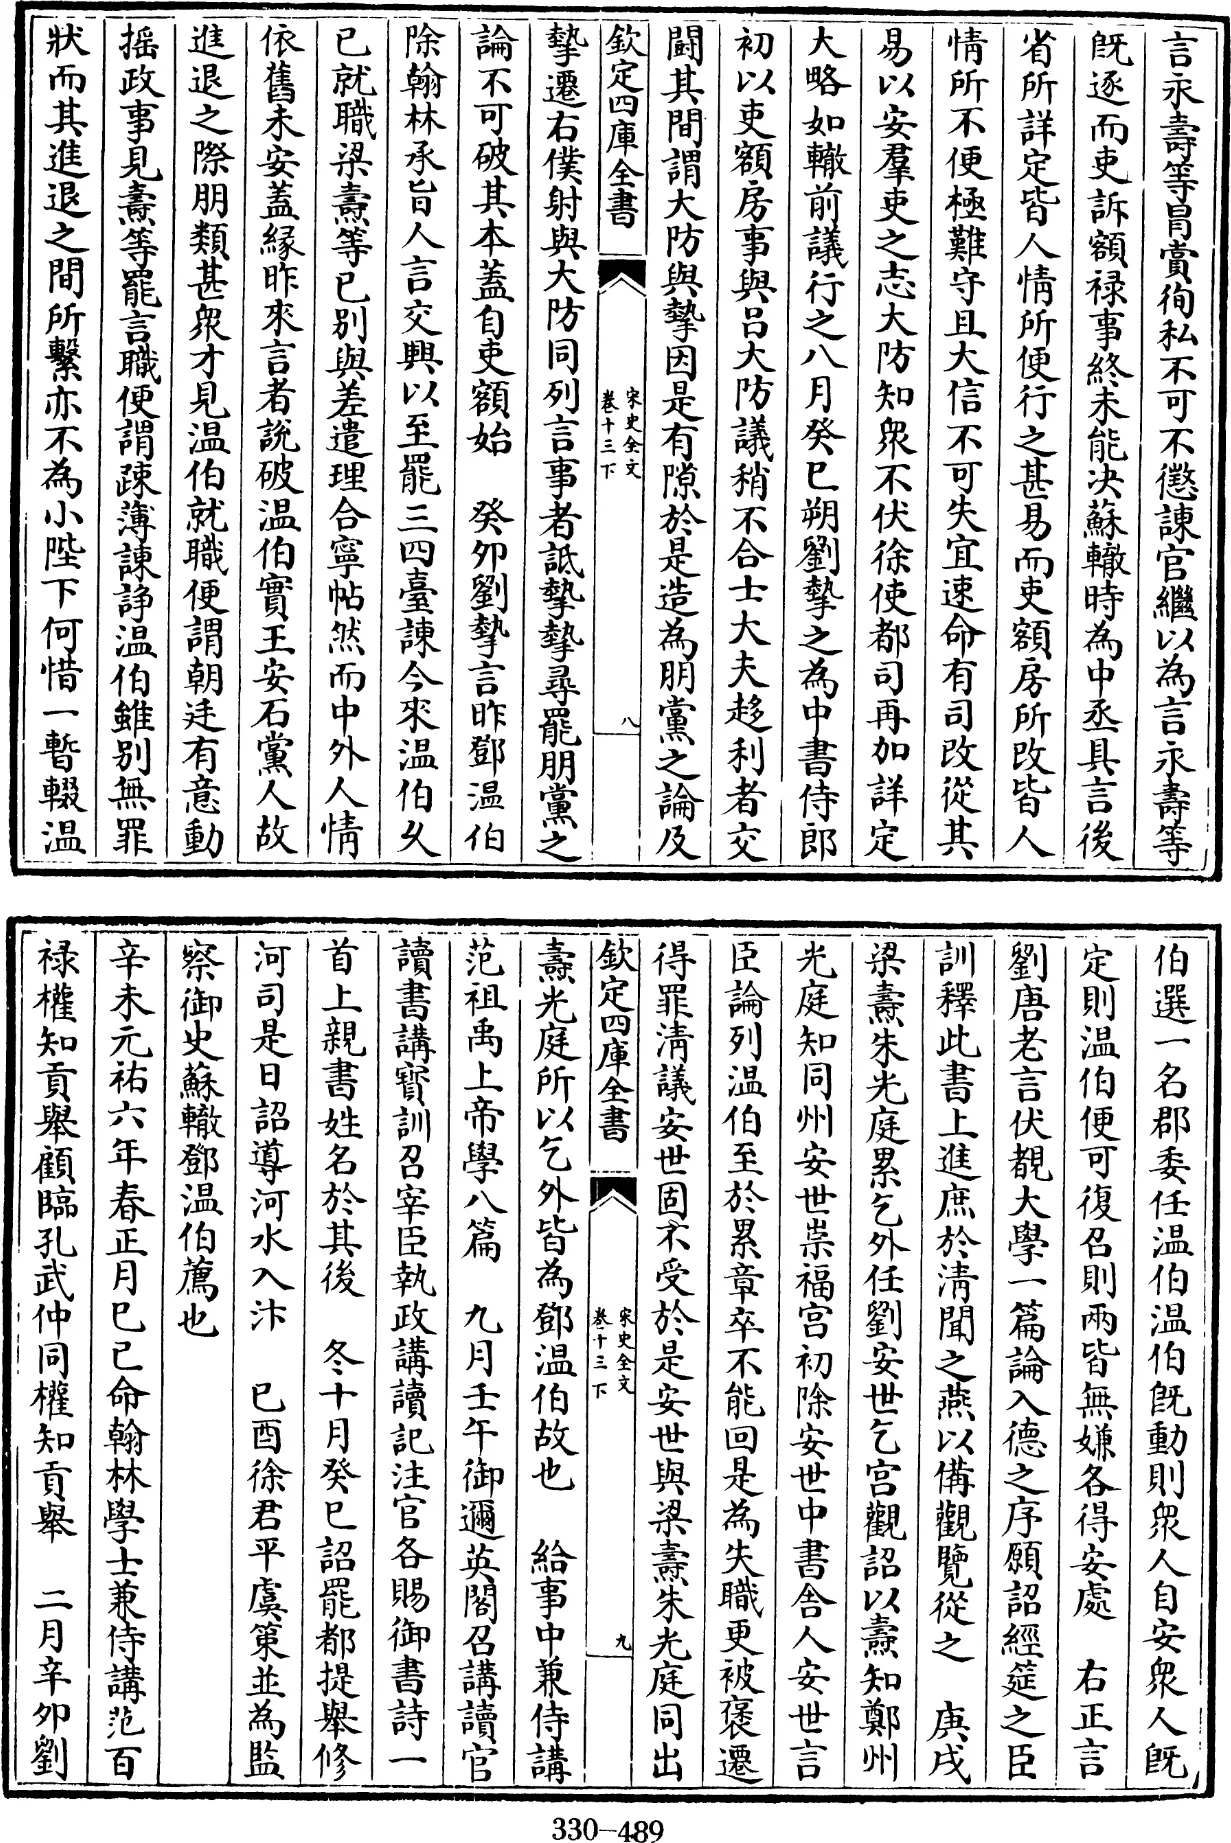 言永壽等冒賞徇私不可不懲諫官繼以為言永壽等
既逐而吏訴額禄事終未能决蘇轍時為中丞具言後
省所詳定皆人情所便行之甚易而吏額房所改皆人
情所不便極難守且大信不可失宜速命有司改從其
易以安羣吏之志大防知衆不伏徐使都司再加詳定
大略如轍前議行之八月癸巳朔劉摯之為中書侍郎
初以吏額房事與吕大防議稍不合士大夫趍利者交
鬪其間謂大防與摯因是有隙於是造為朋黨之論及
欽定四庫全書
宋史全文
卷十三下
八
摯遷右僕射與大防同列言事者詆摯摯尋罷朋黨之
論不可破其本蓋自吏額始　癸卯劉摯言昨鄧温伯
除翰林承旨人言交興以至罷三四臺諫今來温伯久
已就職梁燾等已别與差遣理合寧帖然而中外人情
依舊未安蓋緣昨來言者說破温伯實王安石黨人故
進退之際朋類甚衆才見温伯就職便謂朝廷有意動
摇政事見燾等罷言職便謂疎薄諫諍温伯雖别無罪
狀而其進退之間所繫亦不為小陛下何惜一暫輟温
伯選一名郡委任温伯温伯既動則衆人自安衆人既
定則温伯便可復召則兩皆無嫌各得安處　右正言
劉唐老言伏覩大學一篇論入德之序願詔經筵之臣
訓釋此書上進庶於清閒之燕以備觀覽從之　庚戌
梁燾朱光庭累乞外任劉安世乞宫觀詔以燾知鄭州
光庭知同州安世崇福宫初除安世中書舍人安世言
臣論列温伯至於累章卒不能回是為失職更被褒遷
得罪清議安世固不受於是安世與梁燾朱光庭同出
欽定四庫全書
宋史全文
卷十三下
九
燾光庭所以乞外皆為鄧温伯故也　給事中兼侍講
范祖禹上帝學八篇　九月壬午御邇英閣召講讀官
讀書講寳訓召宰臣執政講讀記注官各賜御書詩一
首上親書姓名於其後　冬十月癸巳詔罷都提舉修
河司是日詔導河水入汴　已酉徐君平虞策並為監
察御史蘇轍鄧温伯薦也
辛未元祐六年春正月已已命翰林學士兼侍講范百
禄權知貢舉顧臨孔武仲同權知貢舉　二月辛卯劉
330-489